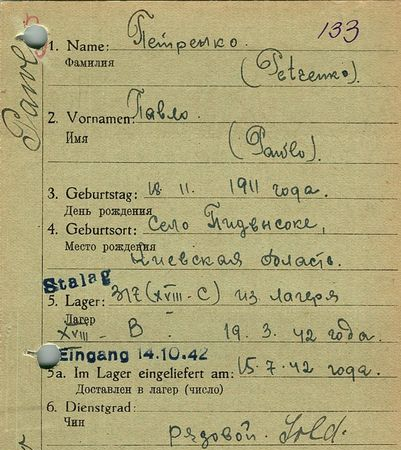 133
1. Name: Петренко.
Фамилия
(Petrenko).
2. Vornamen: Павло.
Имя
(Pawlo).
3. Geburtstag: 18. 11. 1911 года.
День рождения
4. Geburtsort: Село Пидвысоке,
Место рождения
Киевская область.
Stalag
5. Lager: 317 (XVIII - C) из лагеря
Лагерь
XVIII - B. 19. 3. 42 года.
Eingang 14.10.42
5a. Im Lager eingeliefert am: 15. 7. 42 года.
Доставлен в лагерь (число)
6. Dienstgrad:
Чин
рядовой. Sold.